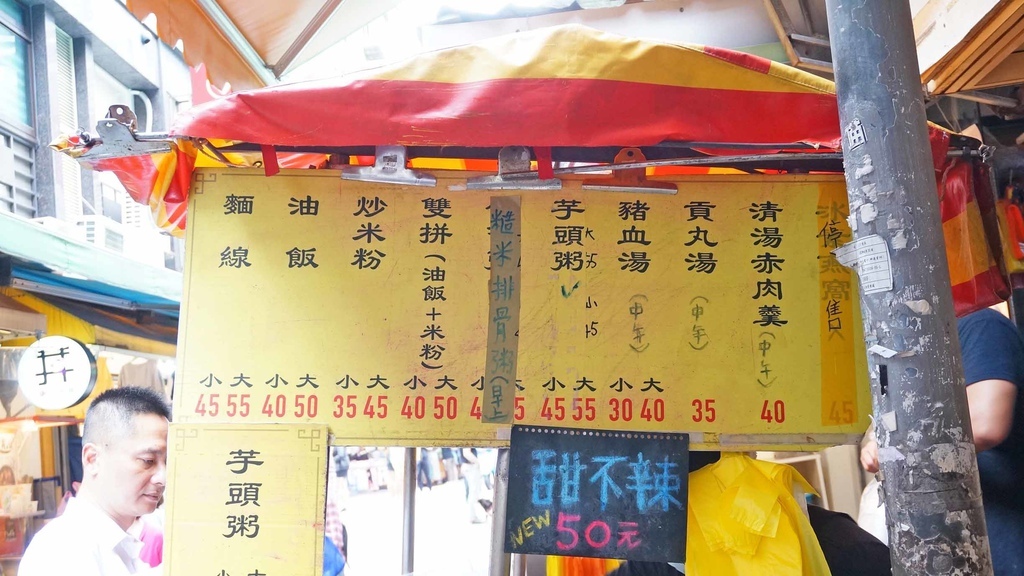 麵線
小 大
45 55
油飯
小 大
40 50
炒米粉
小 大
35 45
雙拼(油飯+米粉)
小 大
40 50
糙米排骨粥(早
芋頭粥
小 大
45 55
豬血湯
(中午)
小 大
30 40
貢丸湯
(中午)
35
清湯赤肉羹
(中午)
40
停
售
45
芋頭粥
小 大
甜不辣
NEW 50元